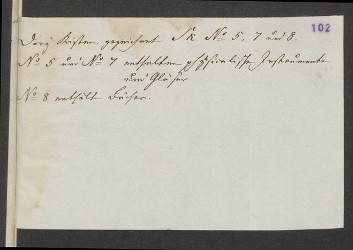 102
Drey Kisten gezeichnet S k No 5, 7 und 8.
No 5 und No 7 enthalten physicalische Instrumente
und Gläser
No 8 enthält Bücher.